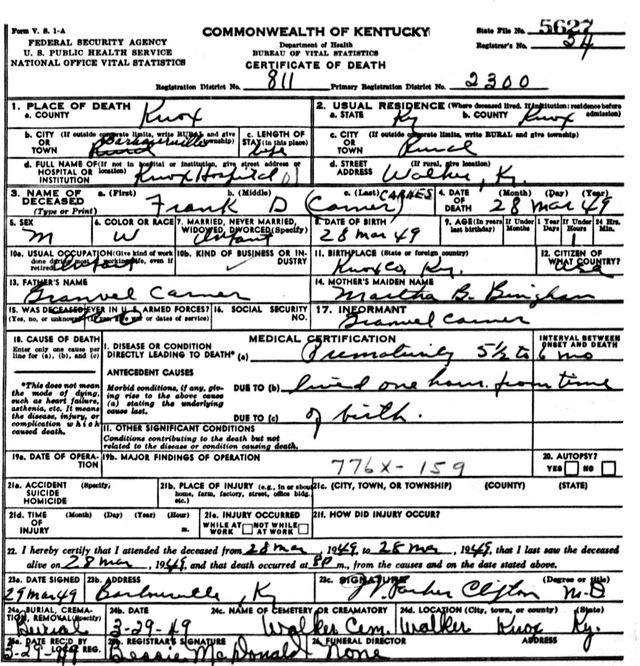 Form V. S. 1-A
COMMONWEALTH OF KENTUCKY
State File No. 5627
FEDERAL SECURITY AGENCY
Department of Health
Registrar's No. 24
U. S. PUBLIC HEALTH SERVICE
BUREAU OF VITAL STATISTICS
NATIONAL OFFICE VITAL STATISTICS
CERTIFICATE OF DEATH
Registration District No. 811 Primary Registration District No. 2300
1. PLACE OF DEATH
a. COUNTY Knox
2. USUAL RESIDENCE (Where deceased lived. If institution: residence before admission)
a. STATE Ky b. COUNTY Knox
b. CITY (If outside corporate limits, write RURAL and give township)
OR TOWN Rural Barbourville
c. LENGTH OF STAY (in this place) life
c. CITY (If outside corporate limits, write RURAL and give township)
OR TOWN Rural
d. FULL NAME OF (If not in hospital or institution, give street address or location)
HOSPITAL OR INSTITUTION Knox Hospital
d. STREET ADDRESS (If rural, give location)
Walker, Ky.
3. NAME OF DECEASED (Type or Print)
a. (First) b. (Middle) c. (Last)
Frank D (Carner) CARNES
4. DATE OF DEATH (Month) (Day) (Year)
28 Mar 49
5. SEX M
6. COLOR OR RACE W
7. MARRIED, NEVER MARRIED, WIDOWED, DIVORCED (Specify) Infant
8. DATE OF BIRTH 28 Mar 49
9. AGE (In years last birthday) If Under 1 Year Months Days If Under 24 Hrs. Hours Min.
1
10a. USUAL OCCUPATION (Give kind of work done during most of working life, even if retired) Infant
10b. KIND OF BUSINESS OR INDUSTRY
11. BIRTHPLACE (State or foreign country)
Knox Co, Ky.
12. CITIZEN OF WHAT COUNTRY?
USA
13. FATHER'S NAME
Granvel Carner
14. MOTHER'S MAIDEN NAME
Martha B. Bingham
15. WAS DECEASED EVER IN U. S. ARMED FORCES?
(Yes, no, or unknown) (If yes, give war or dates of service)
16. SOCIAL SECURITY NO.
17. INFORMANT
Granvel Carner
18. CAUSE OF DEATH
Enter only one cause per line for (a), (b), and (c)
MEDICAL CERTIFICATION
INTERVAL BETWEEN ONSET AND DEATH
I. DISEASE OR CONDITION DIRECTLY LEADING TO DEATH* (a) Prematurity 5½ to 6 mo
*This does not mean the mode of dying, such as heart failure, asthenia, etc. It means the disease, injury, or complication which caused death.
ANTECEDENT CAUSES
Morbid conditions, if any, giving rise to the above cause (a) stating the underlying cause last.
DUE TO (b) lived one hour from time
DUE TO (c) of birth.
II. OTHER SIGNIFICANT CONDITIONS
Conditions contributing to the death but not related to the disease or condition causing death.
19a. DATE OF OPERATION
19b. MAJOR FINDINGS OF OPERATION
776X-159
20. AUTOPSY?
YES NO
21a. ACCIDENT SUICIDE HOMICIDE (Specify)
21b. PLACE OF INJURY (e.g., in or about home, farm, factory, street, office bldg. etc.)
21c. (CITY, TOWN, OR TOWNSHIP) (COUNTY) (STATE)
21d. TIME OF INJURY (Month) (Day) (Year) (Hour) m.
21e. INJURY OCCURRED WHILE AT WORK NOT WHILE AT WORK
21f. HOW DID INJURY OCCUR?
22. I hereby certify that I attended the deceased from 28 Mar, 1949, to 28 Mar, 1949, that I last saw the deceased
alive on 28 Mar, 1949, and that death occurred at 8P m., from the causes and on the date stated above.
23a. DATE SIGNED
29 Mar 49
23b. ADDRESS
Barbourville, Ky
23c. SIGNATURE (Degree or title)
Parker Clifton M.D
24a. BURIAL, CREMATION, REMOVAL (Specify)
Burial
24b. DATE
3-29-49
24c. NAME OF CEMETERY OR CREAMATORY
Walker Cem.
24d. LOCATION (City, town, or county) (State)
Walker Knox Ky.
25a. DATE REC'D BY LOCAL REG.
3-29-49
25b. REGISTRAR'S SIGNATURE
Bessie McDonald
26. FUNERAL DIRECTOR ADDRESS
None